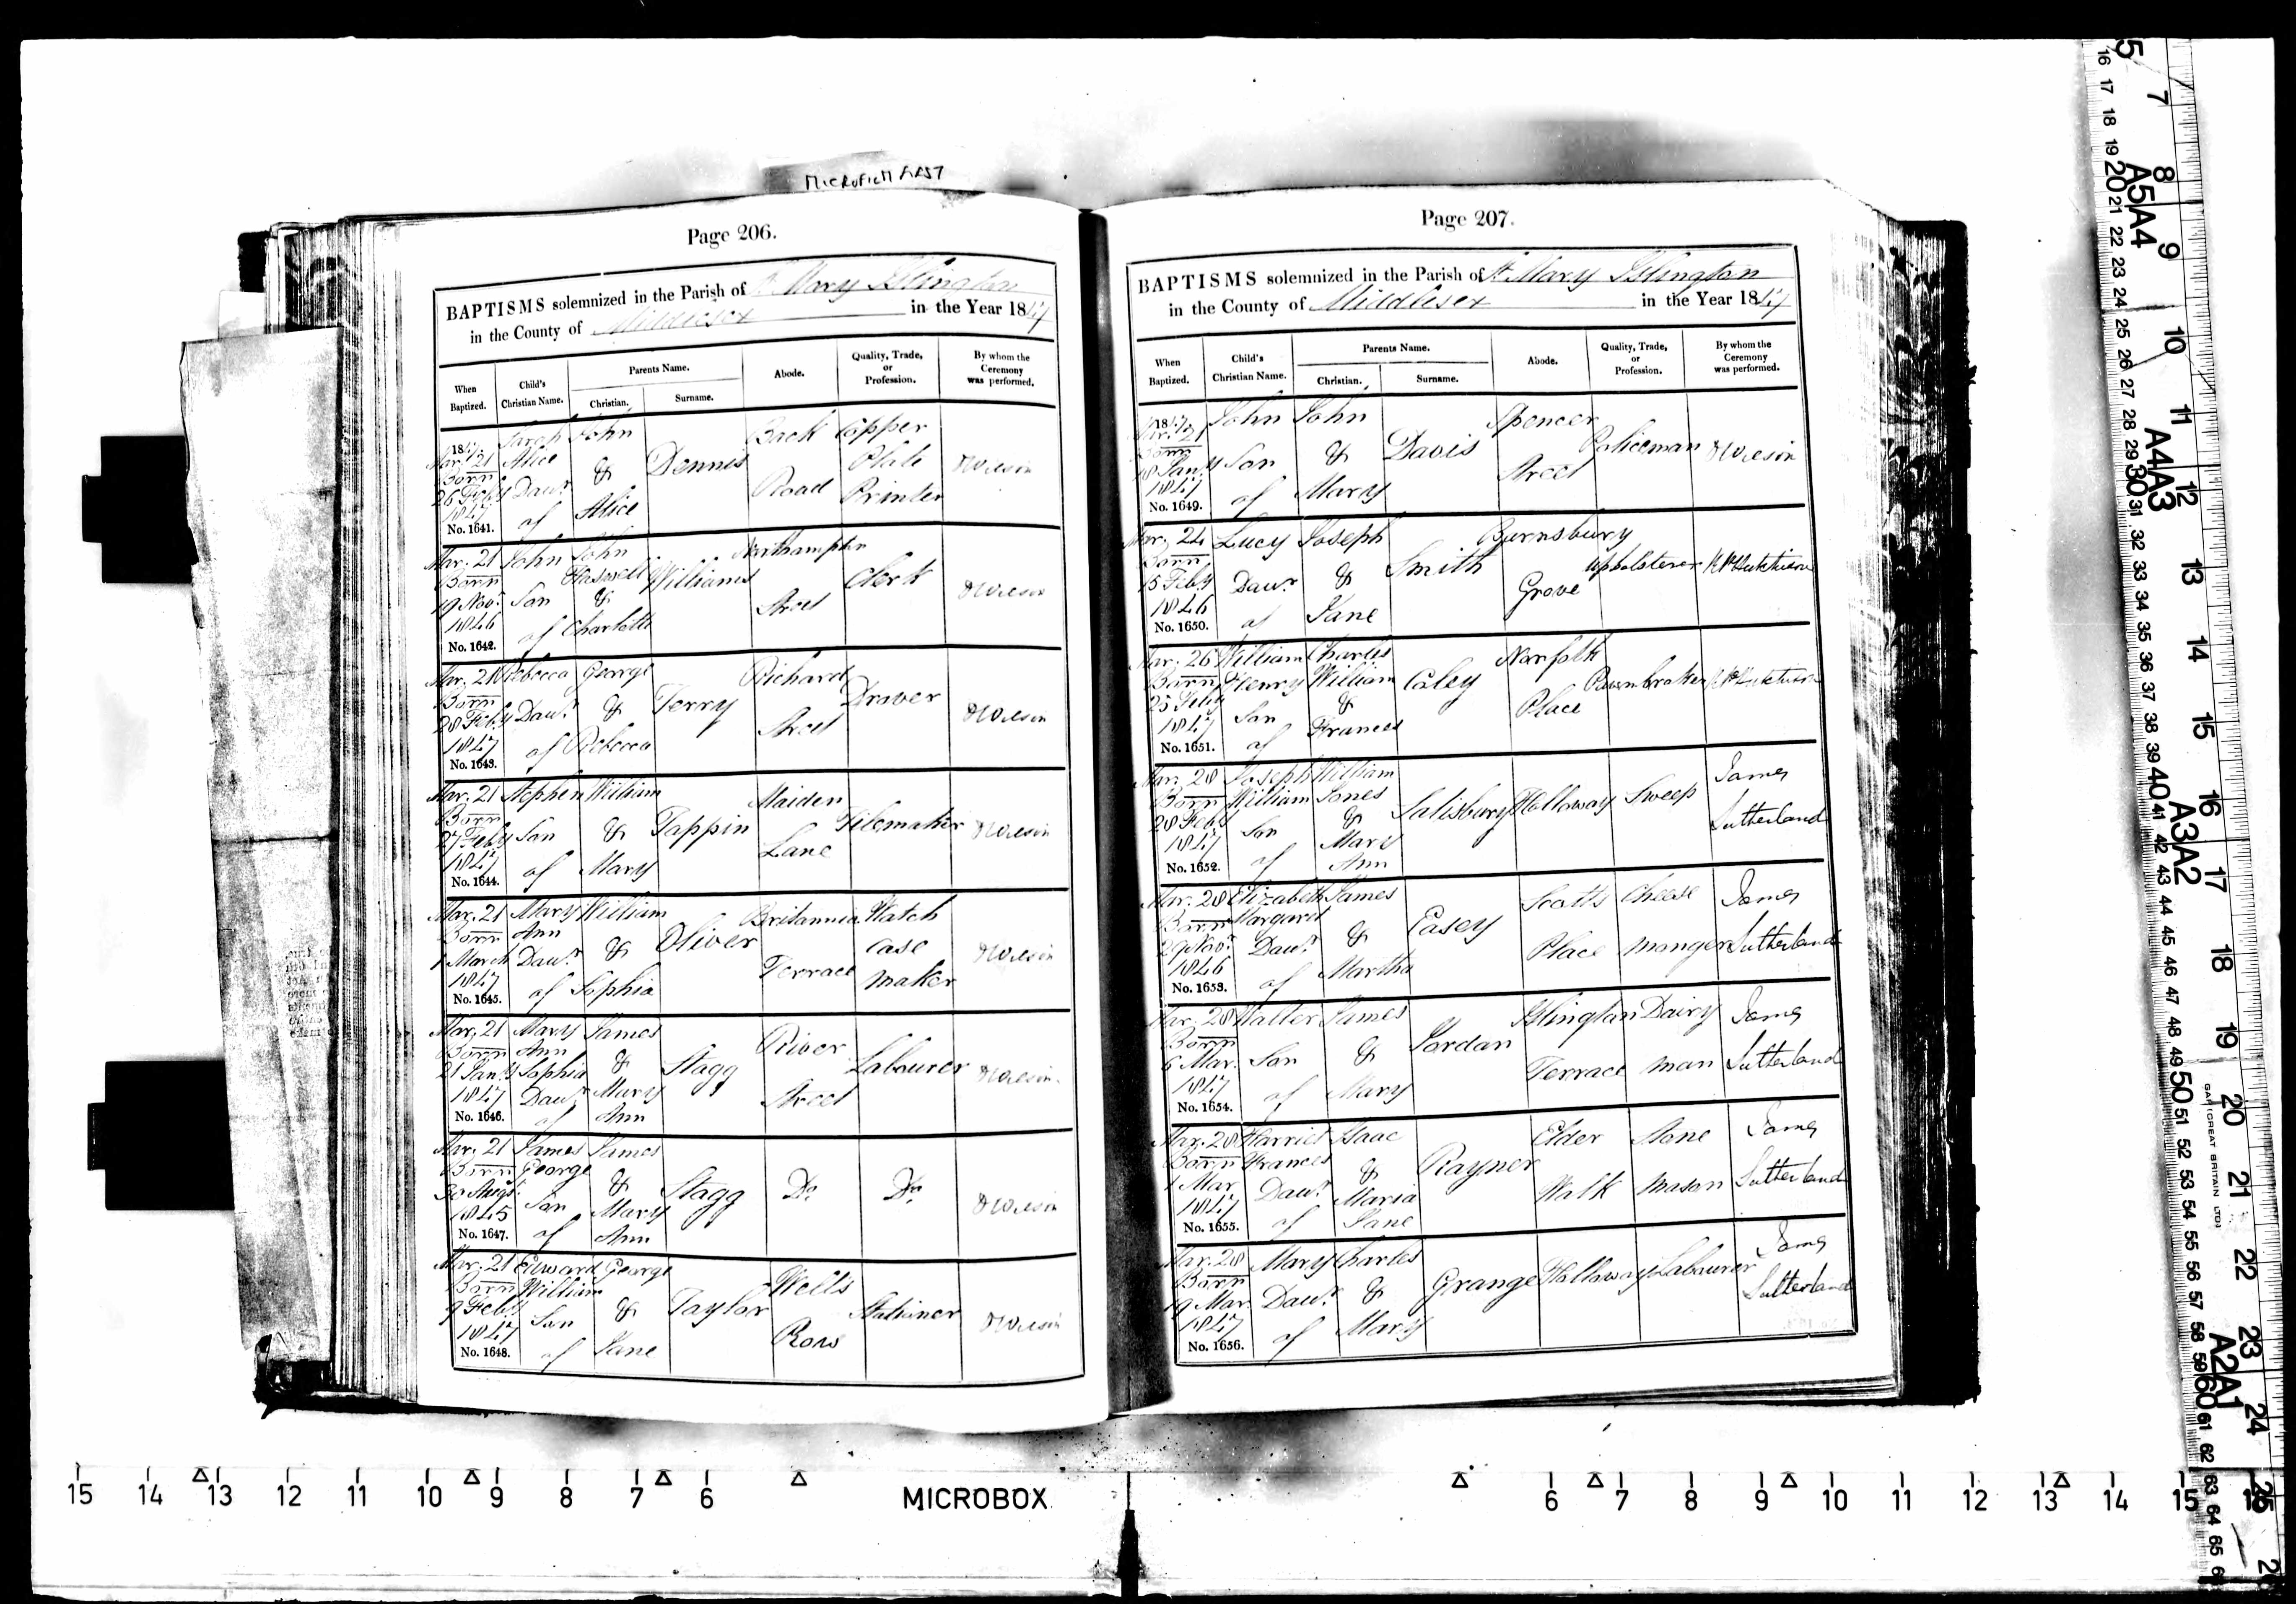 MICROFICHE
Page 206.
BAPTISMS solemnized in the Parish of St Mary Islington
in the County of Middlesex in the Year 1847
When Baptized. Child's Christian Name. Parents Name. Christian. Surname. Abode. Quality, Trade, or Profession. By whom the Ceremony was performed.
1847 Mar. 21 Born 26 Feby 1847 No. 1641. Sarah Alice Dau.r of John & Alice Dennis Back Road Copper Plate Printer D Wilson
Mar. 21 Born 19 Nov.r 1846 No. 1642. John Son of John & Charlotte Williams Northampton Street Clerk D Wilson
Mar. 21 Born 28 Feby 1847 No. 1643. Rebecca Dau.r of George & Rebecca Terry Richard Street Drover D Wilson
Mar. 21 Born 27 Feby 1847 No. 1644. Stephen Son of William & Mary Tappin Maiden Lane Tilemaker D Wilson
Mar. 21 Born 1 March 1847 No. 1645. Mary Ann Dau.r of William & Sophia Oliver Britannia Terrace Watch case maker D Wilson
Mar. 21 Born 21 Jan.y 1847 No. 1646. Mary Ann Sophia Dau.r of James & Mary Ann Stagg River Street Labourer D Wilson
Mar. 21 Born 30 Augt. 1845 No. 1647. James George Son of James & Mary Ann Stagg Do. Do. D Wilson
Mar. 21 Born 9 Feby 1847 No. 1648. Edward William Son of George & Jane Taylor Wells Row Stationer D Wilson
Page 207.
BAPTISMS solemnized in the Parish of St Mary Islington
in the County of Middlesex in the Year 1847
When Baptized. Child's Christian Name. Parents Name. Christian. Surname. Abode. Quality, Trade, or Profession. By whom the Ceremony was performed.
1847 Mar. 21 Born 18 Jan.y 1847 No. 1649. John Son of John & Mary Davis Spencer Street Policeman D Wilson
Mar. 24 Born 15 Feby 1846 No. 1650. Lucy Dau.r of Joseph & Jane Smith Barnsbury Grove Upholsterer
Mar. 26 Born 25 Feby 1847 No. 1651. William Henry Son of Charles William & Frances Caley Norfolk Place Pawnbroker
Mar. 28 Born 28 Feby 1847 No. 1652. Joseph William Son of William Jones & Mary Ann Salisbury Holloway Sweep James Sutherland
Mar. 28 Born 29 Nov.r 1846 No. 1653. Elizabeth Margaret Dau.r of James & Martha Easey Scotts Place Cheese monger James Sutherland
Mar. 28 Born 6 Mar. 1847 No. 1654. Walter Son of James & Mary Jordan Islington Terrace Dairy man James Sutherland
Mar. 28 Born 1 Mar. 1847 No. 1655. Harriet Frances Dau.r of Isaac & Maria Jane Rayner Elder Walk Stone mason James Sutherland
Mar. 28 Born 19 Mar. 1847 No. 1656. Mary Dau.r of Charles & Mary Grange Holloway Labourer James Sutherland
15 14 13 12 11 10 9 8 7 6 MICROBOX 6 7 8 9 10 11 12 13 14 15
A5 A4 A4 A3 A3 A2 A2 A1
(GREAT BRITAIN LTD)